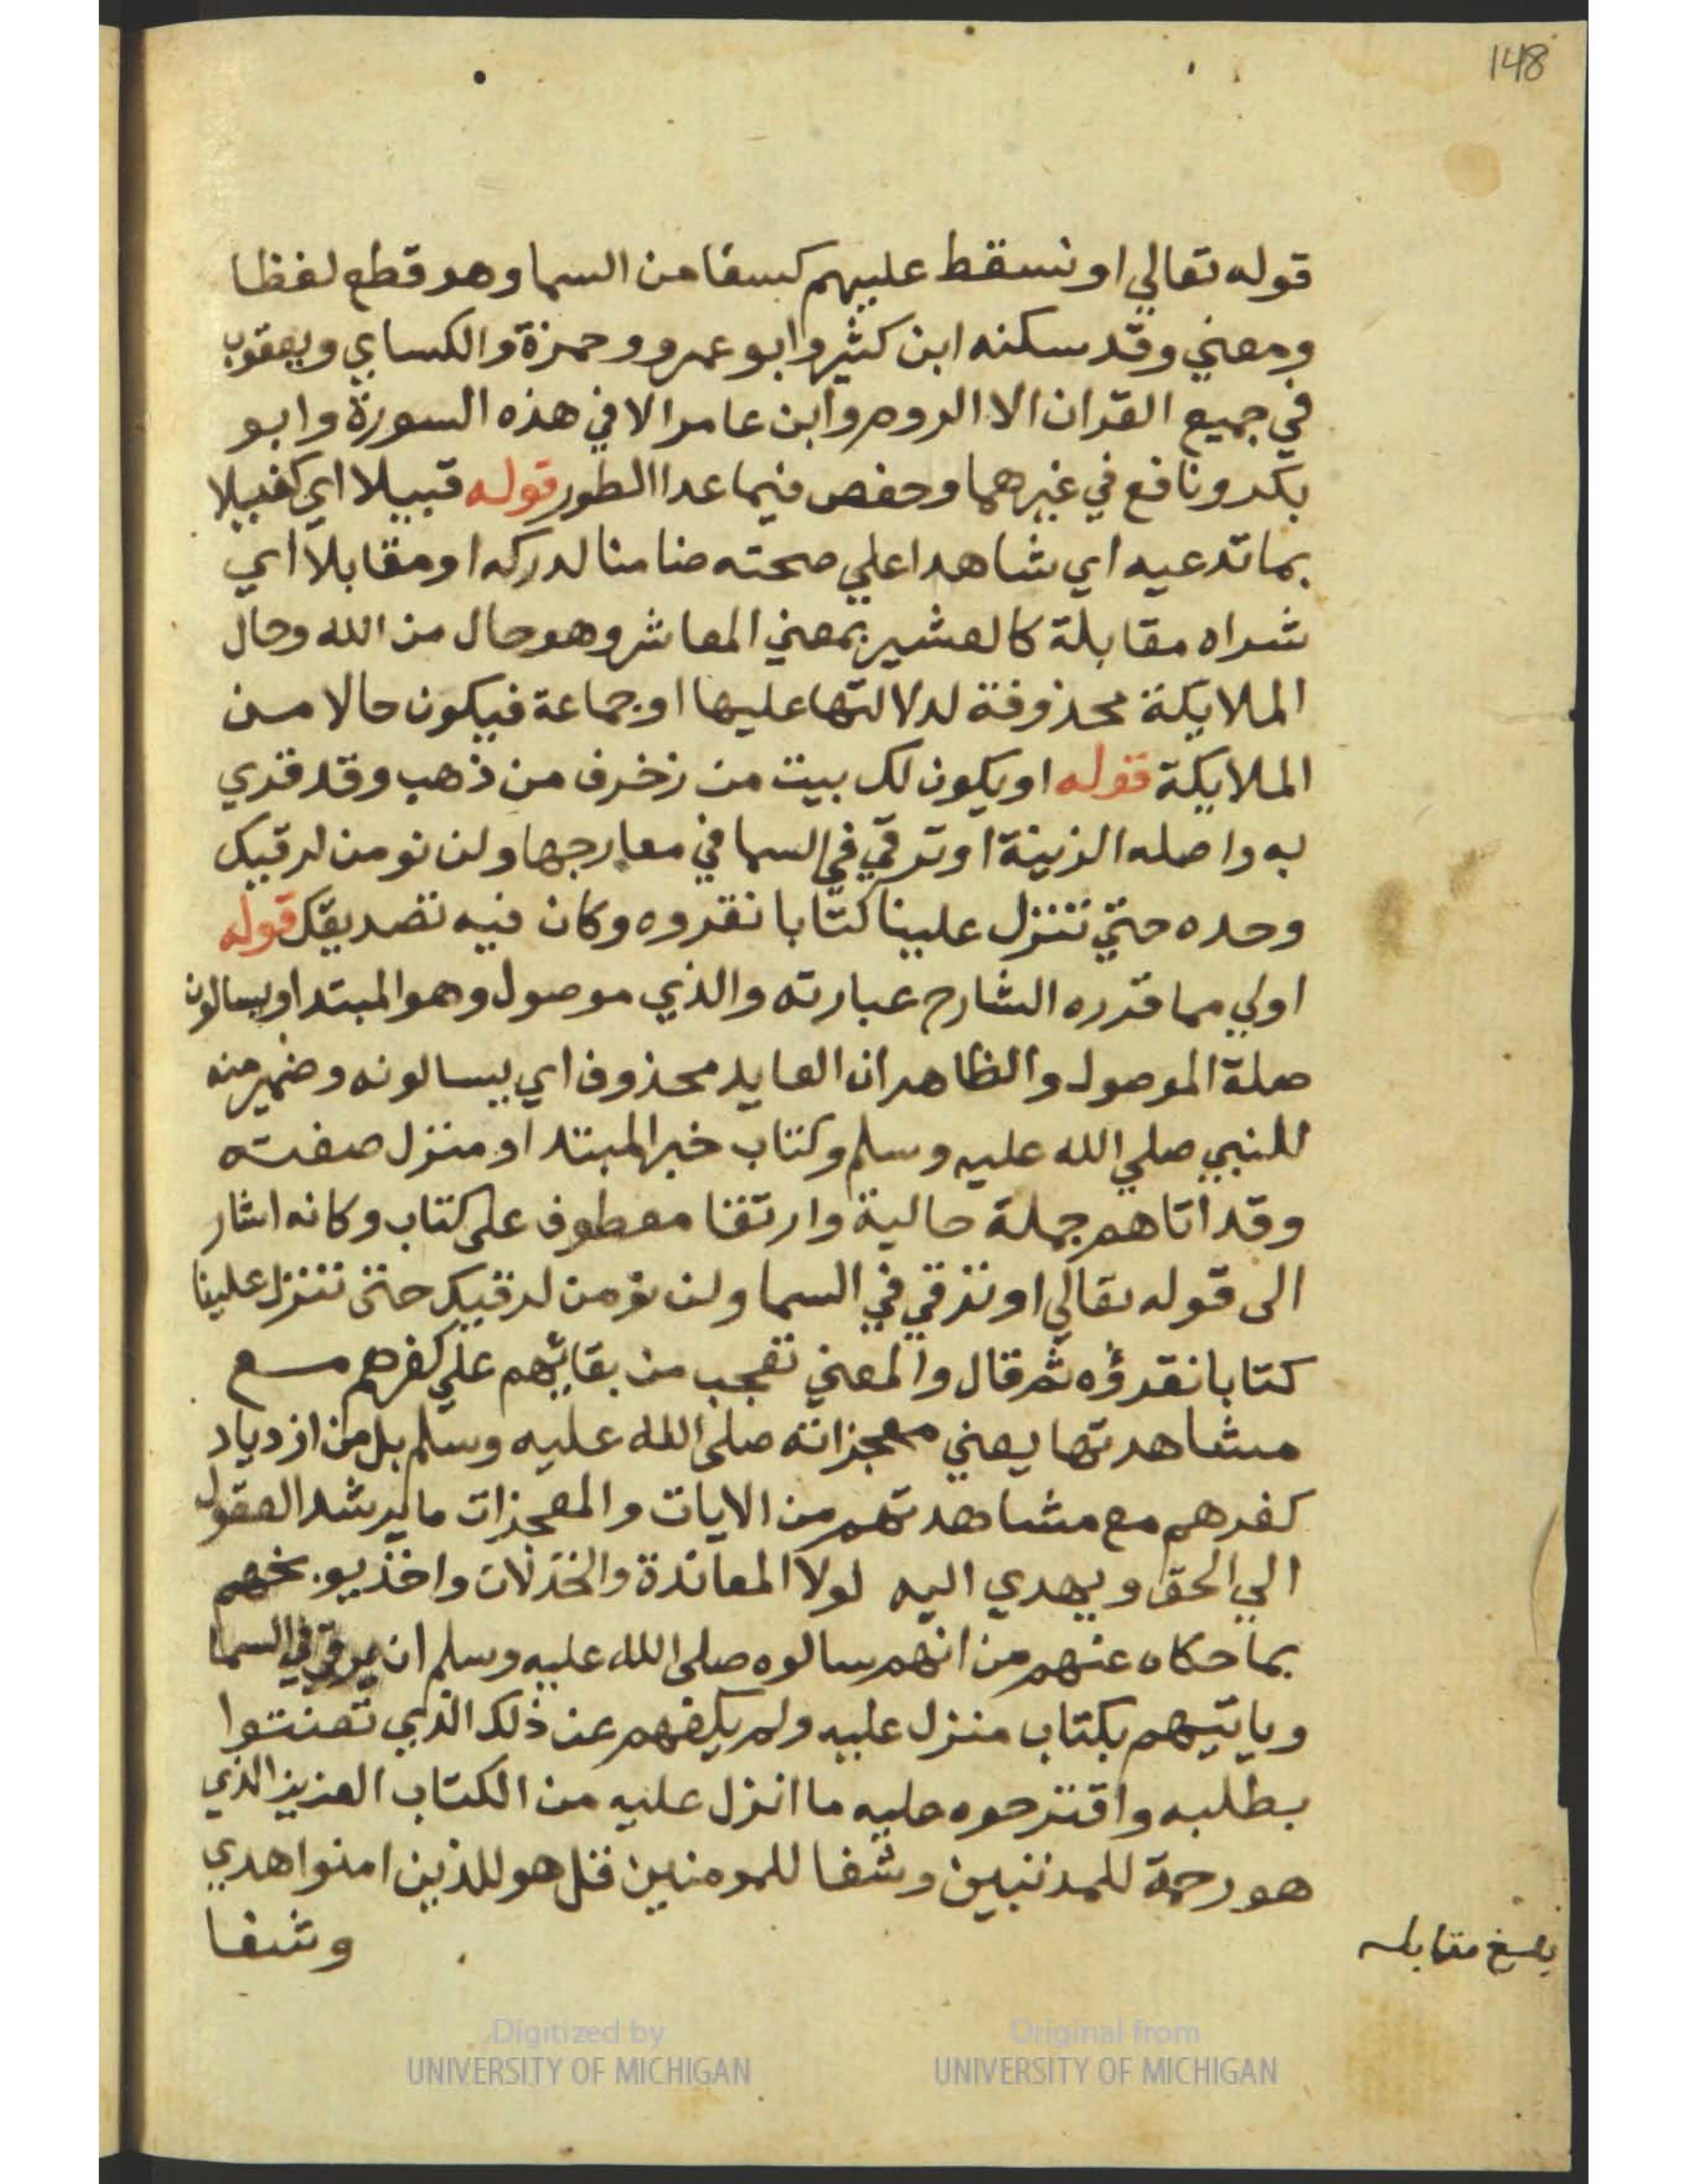 148
قوله تعالي او نسقط عليهم كسفا من السما وهو قطع لفظا
ومعني وقد سكنه ابن كثير وابو عمرو وحمزة والكساي ويعقوب
في جميع القران الا الروم وابن عامر الا في هذه السورة وابو
بكر ونافع في غيرهما وحفص فيما عدا الطور قوله قبيلا اي كفيلا
بما تدعيه اي شاهدا علي صحته ضامنا لدركه او مقابلا اي
نراه مقابلة كالعشير بمعني المعاشر وهو حال من الله وحال
الملايكة محذوفة لدلالتها عليها او جماعة فيكون حالا من
الملايكة قوله او يكون لك بيت من زخرف من ذهب وقد قري
به واصله الزينة او ترقي في السما في معارجها ولن نومن لرقيك
وحده حتي تنزل علينا كتابا نقروه وكان فيه تصديقك قوله
اولي مما قرره الشارح عبارته والذي موصول وهو المبتدا ويسالون
صلة الموصول والظاهر ان العايد محذوف اي يسالونه وضمير منه
للنبي صلي الله عليه وسلم وكتاب خبر المبتدا ومنزل صفته
وقد اتاهم جملة حالية وارتقا معطوف على كتاب وكانه اشار
الى قوله تعالي او ترقي في السما ولن نؤمن لرقيك حتى تنزل علينا
كتابا نقرؤه ثم قال والمعني تعجب من بقائهم علي كفرهم مع
مشاهدتها يعني معجزاته صلى الله عليه وسلم بل من ازدياد
كفرهم مع مشاهدتهم من الايات والمعجزات ما يرشد العقول
الي الحق ويهدي اليه لولا المعاندة والخذلان واخذ يوبخهم
بما حكاه عنهم من انهم سالوه صلى الله عليه وسلم ان يرقي في السما
وياتيهم بكتاب منزل عليه ولم يكفهم عن ذلك الذي تعنتوا
بطلبه واقترحوه عليه ما انزل عليه من الكتاب العزيز الذي
هو رحمة للمذنبين وشفا للمومنين قل هو للذين امنوا هدي
وشفا
مقابله
Digitized by
UNIVERSITY OF MICHIGAN
Original from
UNIVERSITY OF MICHIGAN